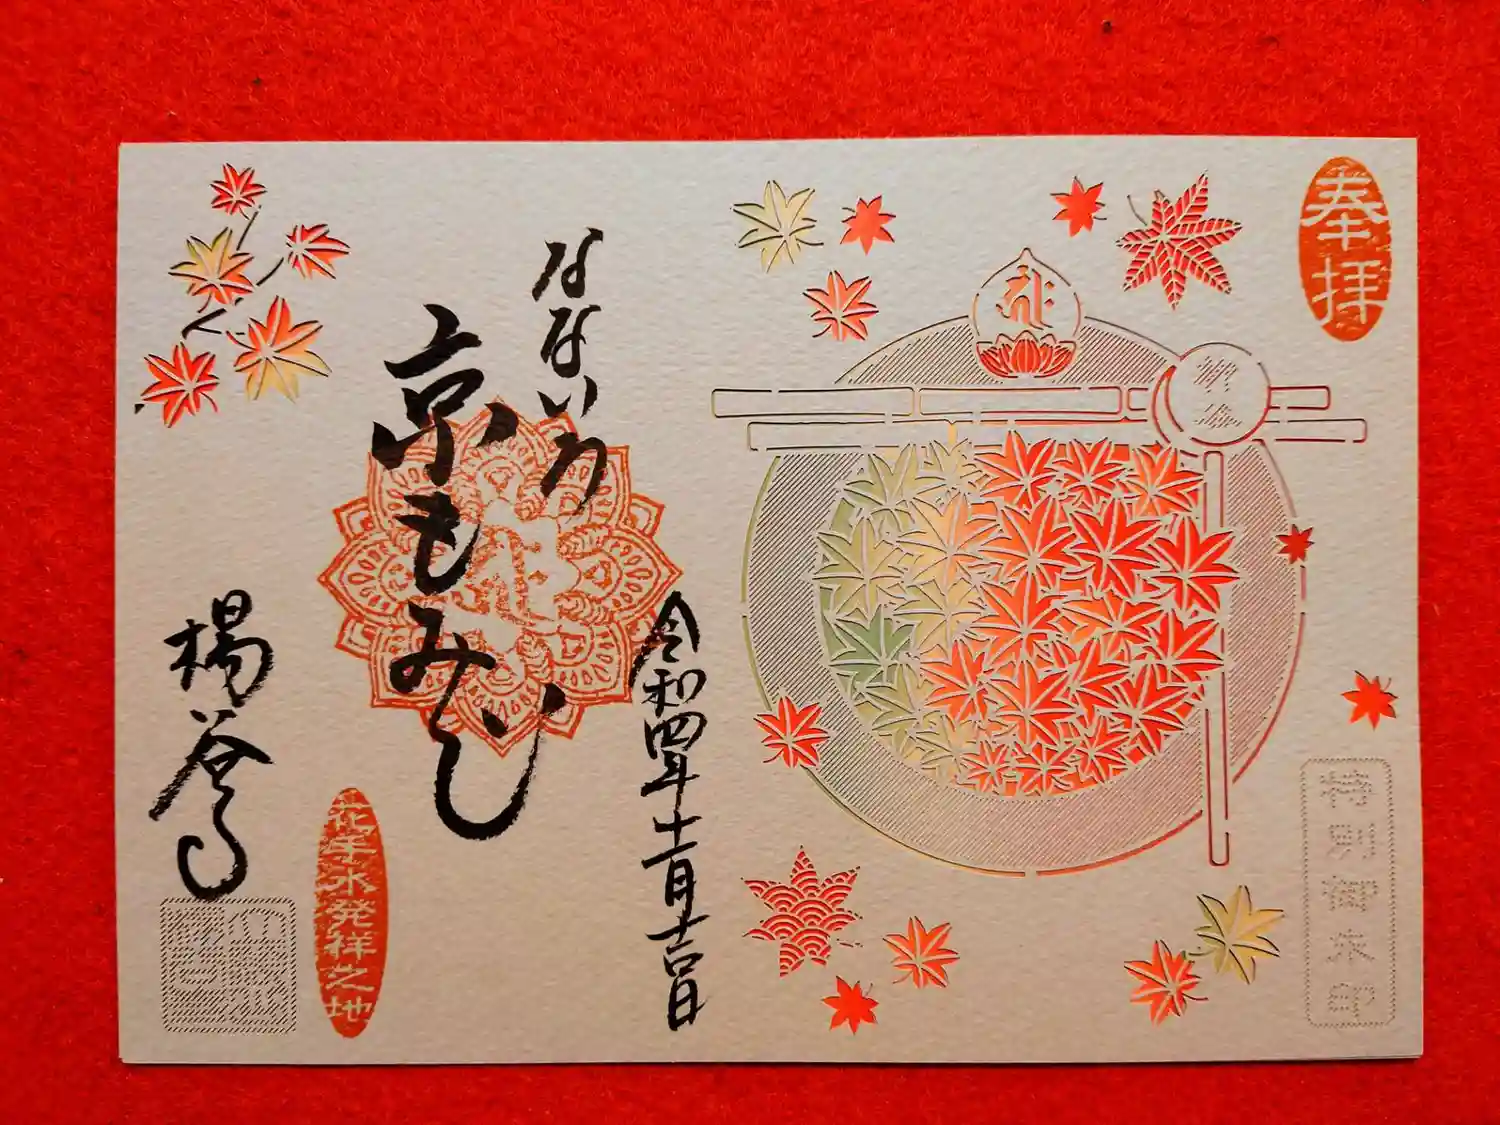 奉拝
特別御朱印
なないろ
京もみじ
令和四年十一月吉日
花手水発祥之地
楊谷寺